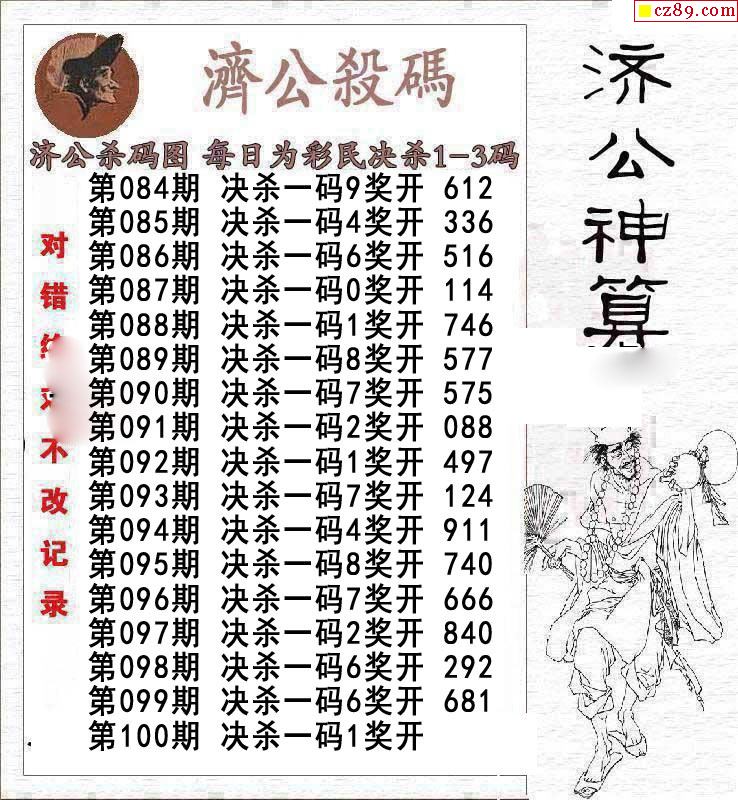 cz89.com
濟公殺碼
济公杀码图 每日为彩民决杀1-3码
第084期 决杀一码9奖开 612
第085期 决杀一码4奖开 336
第086期 决杀一码6奖开 516
第087期 决杀一码0奖开 114
第088期 决杀一码1奖开 746
第089期 决杀一码8奖开 577
第090期 决杀一码7奖开 575
第091期 决杀一码2奖开 088
第092期 决杀一码1奖开 497
第093期 决杀一码7奖开 124
第094期 决杀一码4奖开 911
第095期 决杀一码8奖开 740
第096期 决杀一码7奖开 666
第097期 决杀一码2奖开 840
第098期 决杀一码6奖开 292
第099期 决杀一码6奖开 681
第100期 决杀一码1奖开
对错不改记录
济公神算